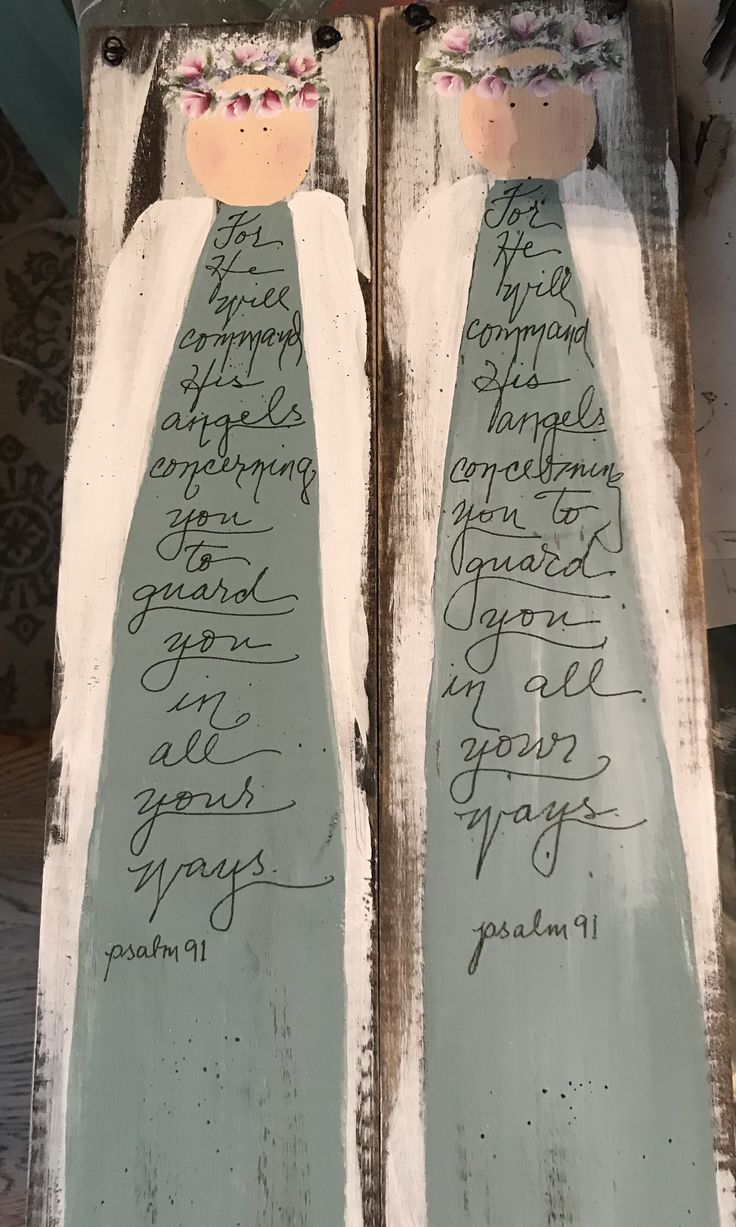 For
He
will
command
His
angels
concerning
you
to
guard
you
in
all
your
ways.
psalm 91
For
He
will
command
His
angels
concerning
you to
guard
you
in all
your
ways.
psalm 91